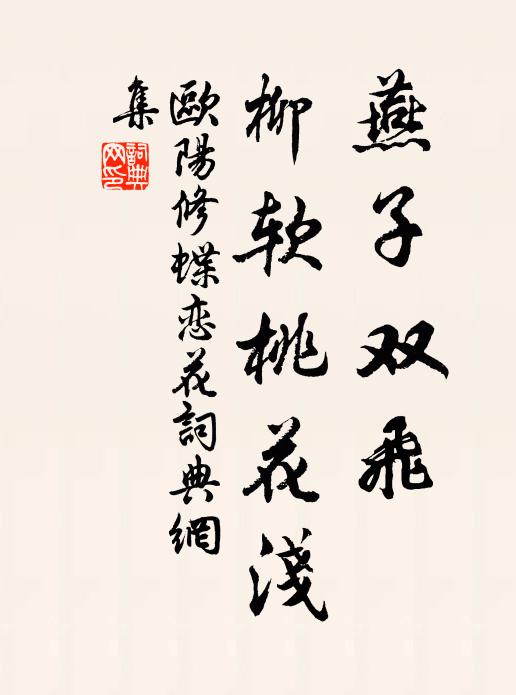 燕子双飞
柳软桃花淺
歐陽修蝶恋花詞典網
集
詞典网印